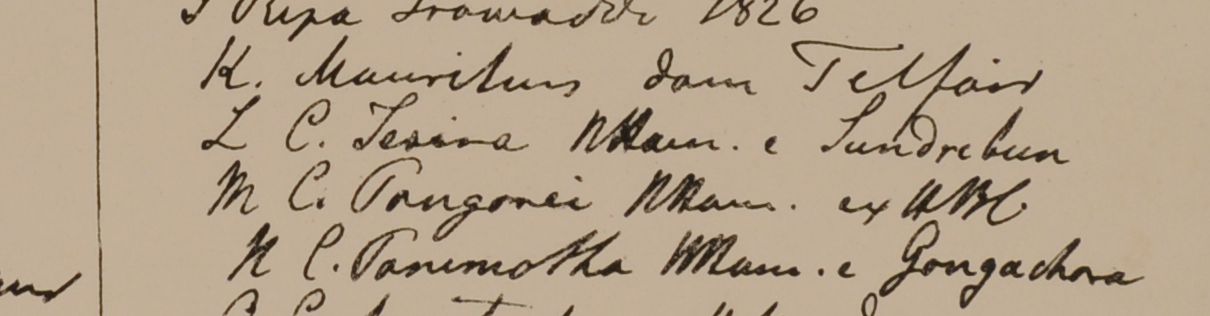 Ripa Irawaddi 1826
K. Mauritius dom Telfair
L C. Tesina HHam. e Sundrebun
M C. Pangorei HHam. ex HBC
N C. Panimotha HHam. e Gongachora